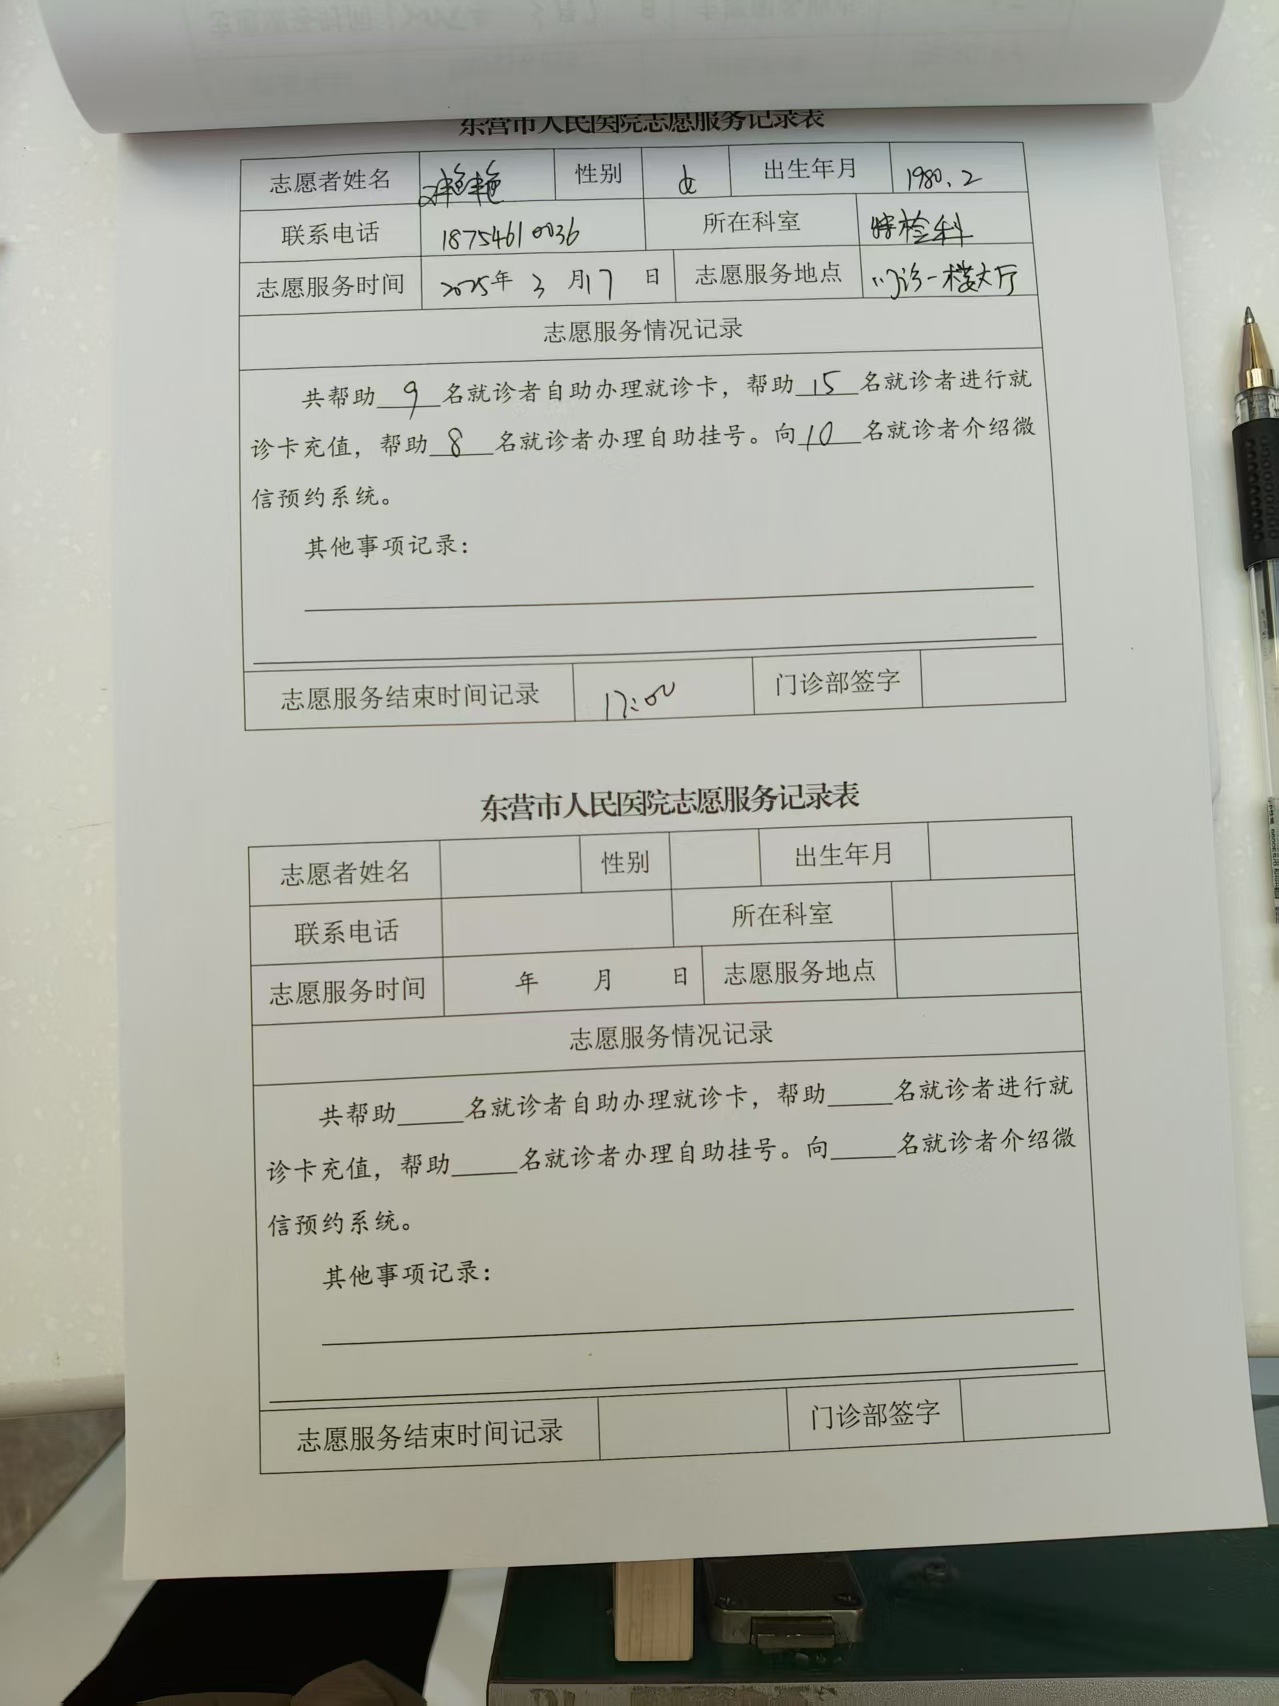 东营市人民医院志愿服务记录表
志愿者姓名 艳艳 性别 女 出生年月 1980.2
联系电话 18754610036 所在科室 特检科
志愿服务时间 2025年 3 月17 日 志愿服务地点 门诊一楼大厅
志愿服务情况记录
共帮助 9 名就诊者自助办理就诊卡，帮助 15 名就诊者进行就
诊卡充值，帮助 8 名就诊者办理自助挂号。向 10 名就诊者介绍微
信预约系统。
其他事项记录：
志愿服务结束时间记录 17:00 门诊部签字
东营市人民医院志愿服务记录表
志愿者姓名 性别 出生年月
联系电话 所在科室
志愿服务时间 年 月 日 志愿服务地点
志愿服务情况记录
共帮助_____名就诊者自助办理就诊卡，帮助_____名就诊者进行就
诊卡充值，帮助_____名就诊者办理自助挂号。向_____名就诊者介绍微
信预约系统。
其他事项记录：
志愿服务结束时间记录 门诊部签字